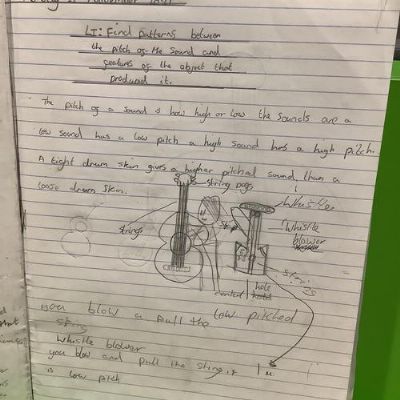 November
LI: Find patterns between
the pitch of the sound and
features of the object that
produced it.
The pitch of a sound is how high or low the sounds are a
low sound has a low pitch a high sound has a high pitch.
A tight drum skin gives a higher pitched sound than a
loose drum skin.
string pegs
Whistle
strings
Whistle
blower
hole
you blow a pull the low pitched
string
Whistle blower
you blow and pull the string it
is low pitch